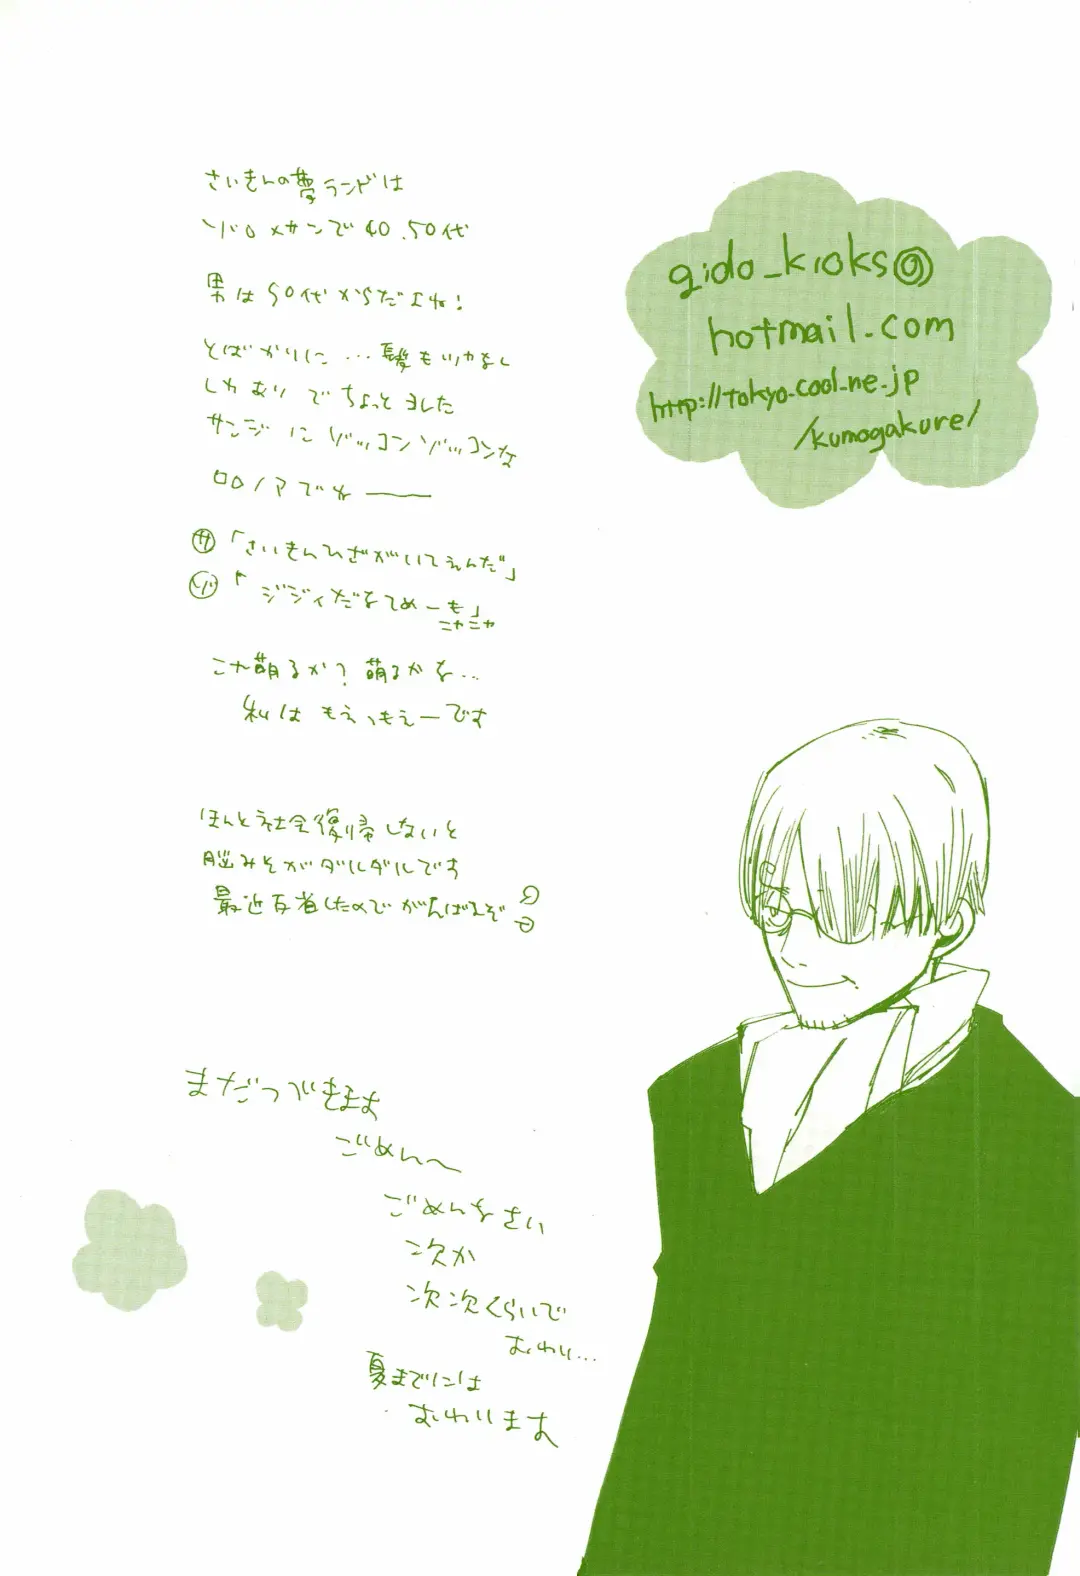 さいきんの夢ランドは
ゾロメサンで40.50代
男は50代からだよね!
とばかりに…髪もツヤなし
しわあり でちょっとヨレた
サンジ に ゾッコンゾッコンな
ロロノアでね――
サ「さいきんひざがいてえんだ」
ゾ「ジジィだなてめーも」
ニヤニヤ
こや萌るか?萌るかな…
私は もえっもえーです
ほんと社会復帰しないと
脳みそがダルダルです
最近反省したので がんばるぞ
まだつづきます
ごめん〜
ごめんなさい
次か
次次くらいで
おわり…
夏までには
おわります
gido_kioks@
hotmail.com
http://tokyo.cool.ne.jp
/kumogakure/